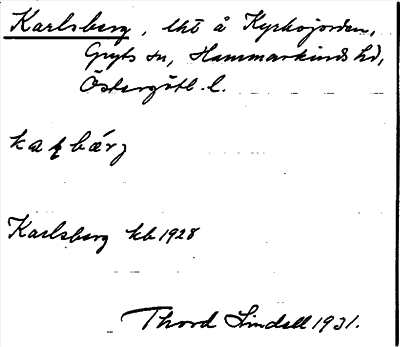 Karlsberg, lht å Kyrkojorden,
Gryts sn, Hammarkinds hd,
Östergötl. l.
Karlsberg kb 1928
Thord Lindell 1931.